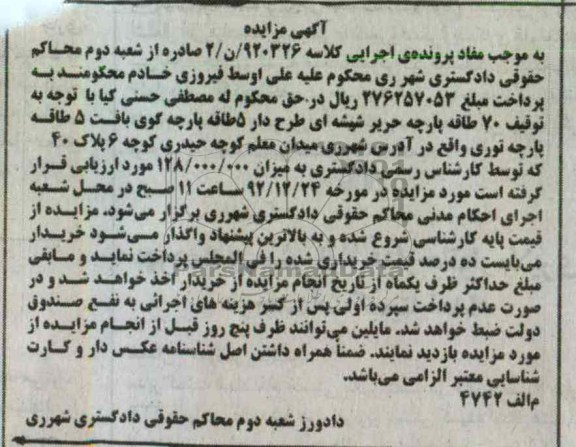 آگهی مزایده
به موجب مفاد پرونده‌ی اجرایی کلاسه ۹۲۰۳۲۶/ن/۲ صادره از شعبه دوم محاکم
حقوقی دادگستری شهر ری محکوم علیه علی اوسط فیروزی خادم محکومند به
پرداخت مبلغ ۲۷۶۲۵۷۰۵۳ ریال در حق محکوم له مصطفی حسنی کیا با توجه به
توقیف ۷۰ طاقه پارچه حریر شیشه ای طرح دار ۵طاقه پارچه گوی بافت ۵ طاقه
پارچه توری واقع در آدرس شهرری میدان معلم کوچه حیدری کوچه ۶ پلاک ۴۰
که توسط کارشناس رسمی دادگستری به میزان ۱۲۸/۰۰۰/۰۰۰ مورد ارزیابی قرار
گرفته است مورد مزایده در مورخه ۹۲/۱۲/۲۴ ساعت ۱۱ صبح در محل شعبه
اجرای احکام مدنی محاکم حقوقی دادگستری شهرری برگزار می‌شود. مزایده از
قیمت پایه کارشناسی شروع شده و به بالاترین پیشنهاد واگذار می‌شود خریدار
می‌بایست ده درصد قیمت خریداری شده را فی المجلس پرداخت نماید و مابقی
مبلغ حداکثر ظرف یکماه از تاریخ انجام مزایده از خریدار اخذ خواهد شد و در
صورت عدم پرداخت سپرده اولی پس از کسر هزینه های اجرائی به نفع صندوق
دولت ضبط خواهد شد. مایلین می‌توانند ظرف پنج روز قبل از انجام مزایده از
مورد مزایده بازدید نمایند. ضمناً همراه داشتن اصل شناسنامه عکس دار و کارت
شناسایی معتبر الزامی می‌باشد.
م‌الف ۴۷۴۲
دادورز شعبه دوم محاکم حقوقی دادگستری شهرری